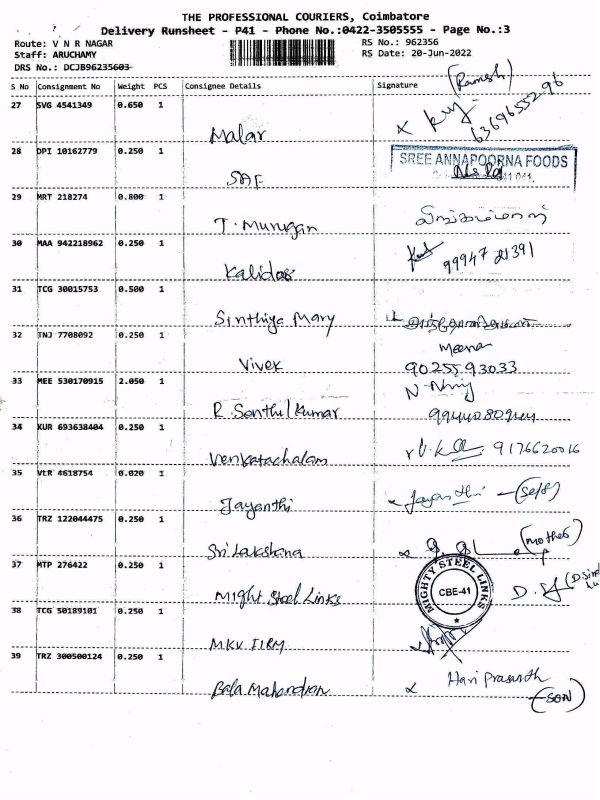 THE PROFESSIONAL COURIERS, Coimbatore
Delivery Runsheet - P41 - Phone No.:0422-3505555 - Page No.:3
Route: V N R NAGAR
RS No.: 962356
Staff: ARUCHAMY
RS Date: 20-Jun-2022
DRS No.: DCJB96235603
S No Consignment No Weight PCS Consignee Details Signature
(Ramesh)
27 SVG 4541349 0.650 1 Malar x 6369655296
28 DPI 10162779 0.250 1 SAF SREE ANNAPOORNA FOODS
29 MRT 218274 0.800 1 T. Murugan
30 MAA 942218962 0.250 1 Kalidas 99947 21391
31 TCG 30015753 0.500 1 Sinthiya Mary
32 TNJ 7708092 0.250 1 Vivek Meena 9025593033
33 MEE 530170915 2.050 1 R. Senthilkumar
34 KUR 693638404 0.250 1 Venkatachalam 9176620016
35 VLR 4618754 0.020 1 Jayanthi Jayanthi (Self)
36 TRZ 122044475 0.250 1 Sri Lakshana (Mother)
37 MTP 276422 0.250 1 Might Steel Links MIGHTY STEEL LINKS CBE-41
38 TCG 50189101 0.250 1 MKV FIRM
39 TRZ 300500124 0.250 1 Bala Mahendran Hari Prasanth
(SON)